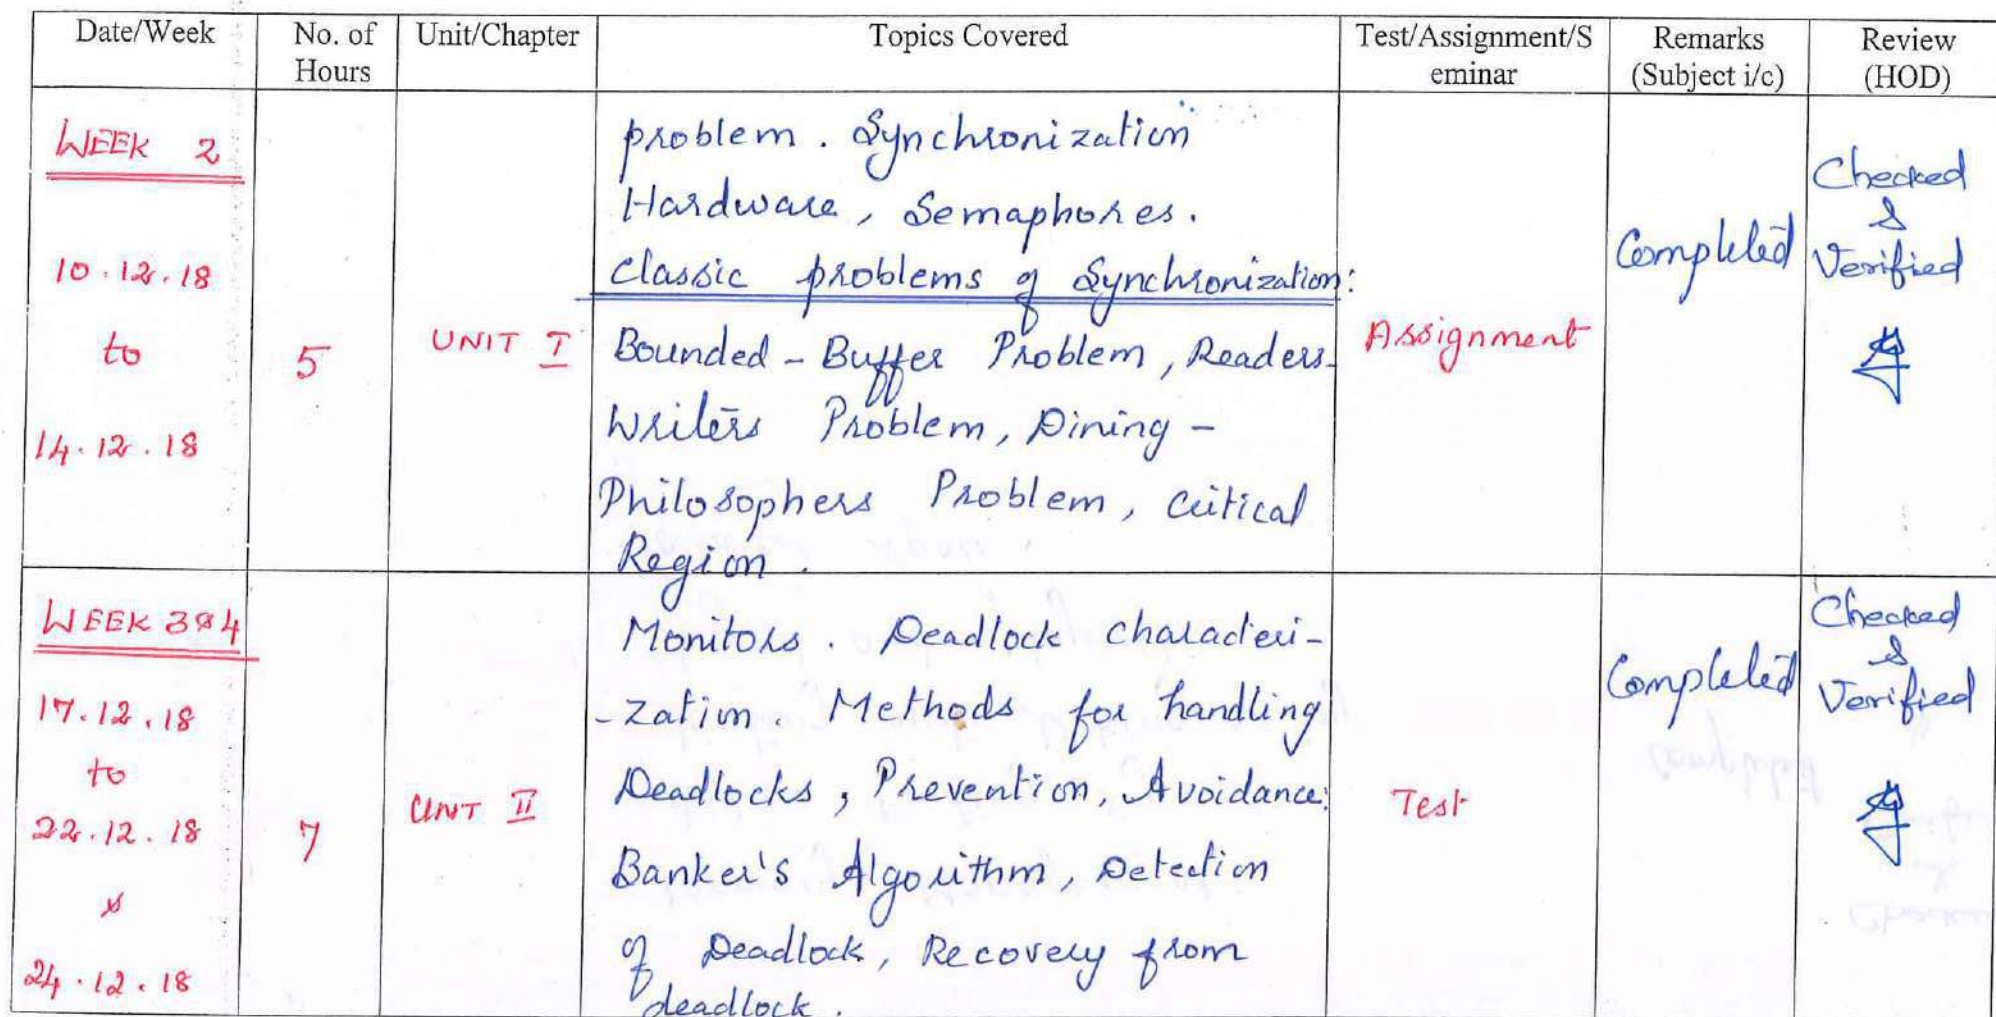 Date/Week
No. of
Hours
Unit/Chapter
Topics Covered
Test/Assignment/S
eminar
Remarks
(Subject i/c)
Review
(HOD)
WEEK 2
10.12.18
to
14.12.18
5
UNIT I
problem. Synchronization
Hardware, Semaphores.
Classic problems of Synchronization:
Bounded-Buffer Problem, Readers-
Writers Problem, Dining-
Philosophers Problem, Critical
Region.
Assignment
Completed
Checked
&
Verified
WEEK 3&4
17.12.18
to
22.12.18
&
24.12.18
7
UNIT II
Monitors. Deadlock characteri-
-zation. Methods for handling
Deadlocks, Prevention, Avoidance:
Banker's Algorithm, Detection
of Deadlock, Recovery from
deadlock.
Test
Completed
Checked
&
Verified